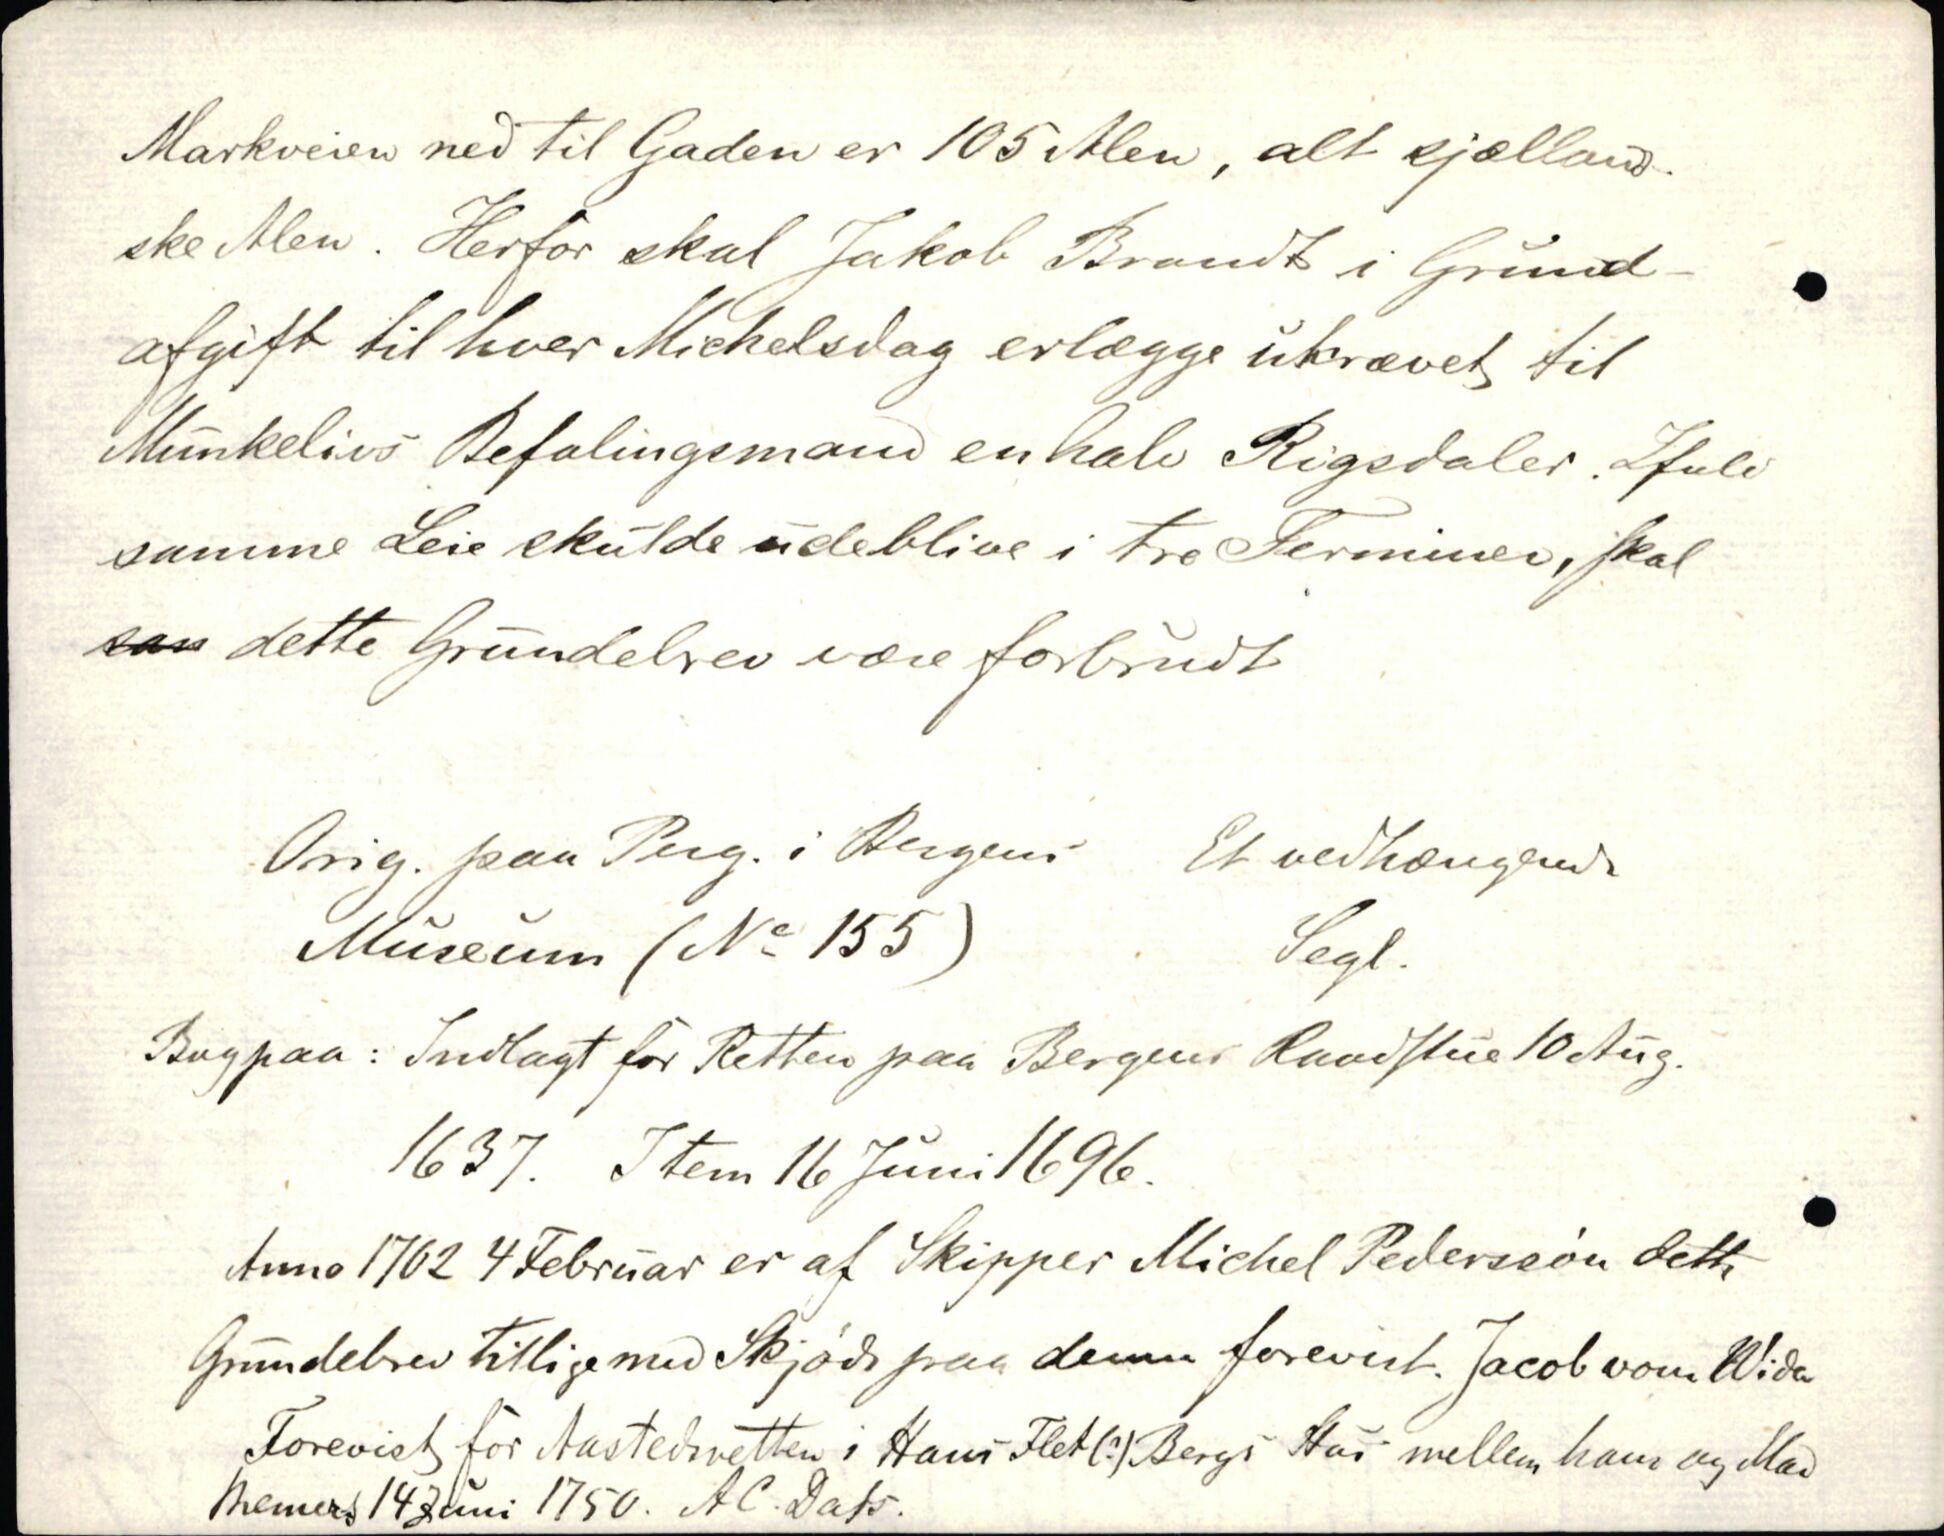 Markveien ned til Gaden er 105 Alen, alt sjælland-
ske Alen. Herfor skal Jakob Brandt i Grund-
afgift til hver Michelsdag erlægge ukrævet til
Munkelivs Befalingsmand en halv Rigsdaler. Ifald
samme Leie skulde udeblive i tre Terminer, skal
dette Grundebrev være forbrudt
Orig. paa Perg. i Bergens Et vedhængende
Museum (No 155) Segl.
Bagpaa: Indlagt for Retten paa Bergens Raadstue 10 Aug.
1637. Item 16 Juni 1696.
Anno 1702 4 Februar er af Skipper Michel Pederssön dette
Grundebrev tillige med Skjöde paa denne forevist. Jacob vom Wida
Forevist for Aastedsretten i Hans Flet(?) Bergs Hus mellem ham og Mad
14 Juni 1750. A C. Dass.